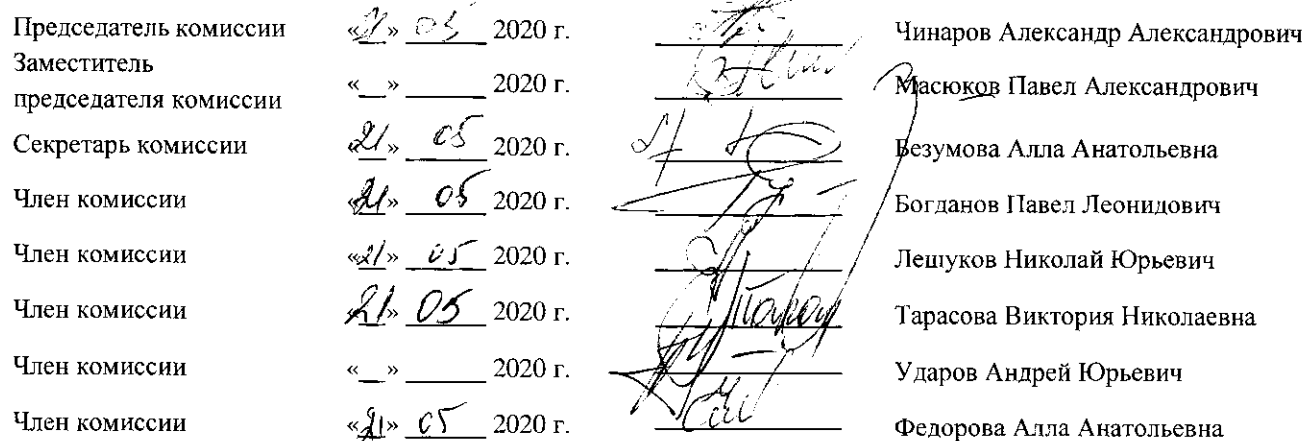 Председатель комиссии «21» 05 2020 г. Чинаров Александр Александрович
Заместитель
председателя комиссии «__» ______ 2020 г. Масюков Павел Александрович
Секретарь комиссии «21» 05 2020 г. Безумова Алла Анатольевна
Член комиссии «21» 05 2020 г. Богданов Павел Леонидович
Член комиссии «21» 05 2020 г. Лешуков Николай Юрьевич
Член комиссии «21» 05 2020 г. Тарасова Виктория Николаевна
Член комиссии «__» ______ 2020 г. Ударов Андрей Юрьевич
Член комиссии «21» 05 2020 г. Федорова Алла Анатольевна